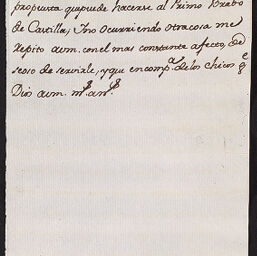 propuesta quepude hacerse al Primo Brabo
de Castilla; Y no ocurriendo otra cosa me
repito aum. con el mas constante afecto, de
seoso de servirle, y que en comp.ª de los chicos g.e
Dios aum. m.s an.s